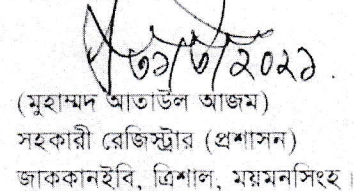 ৩১/৩/২০২১.
(মুহাম্মদ আতাউল আজম)
সহকারী রেজিস্ট্রার (প্রশাসন)
জাককানইবি, ত্রিশাল, ময়মনসিংহ।